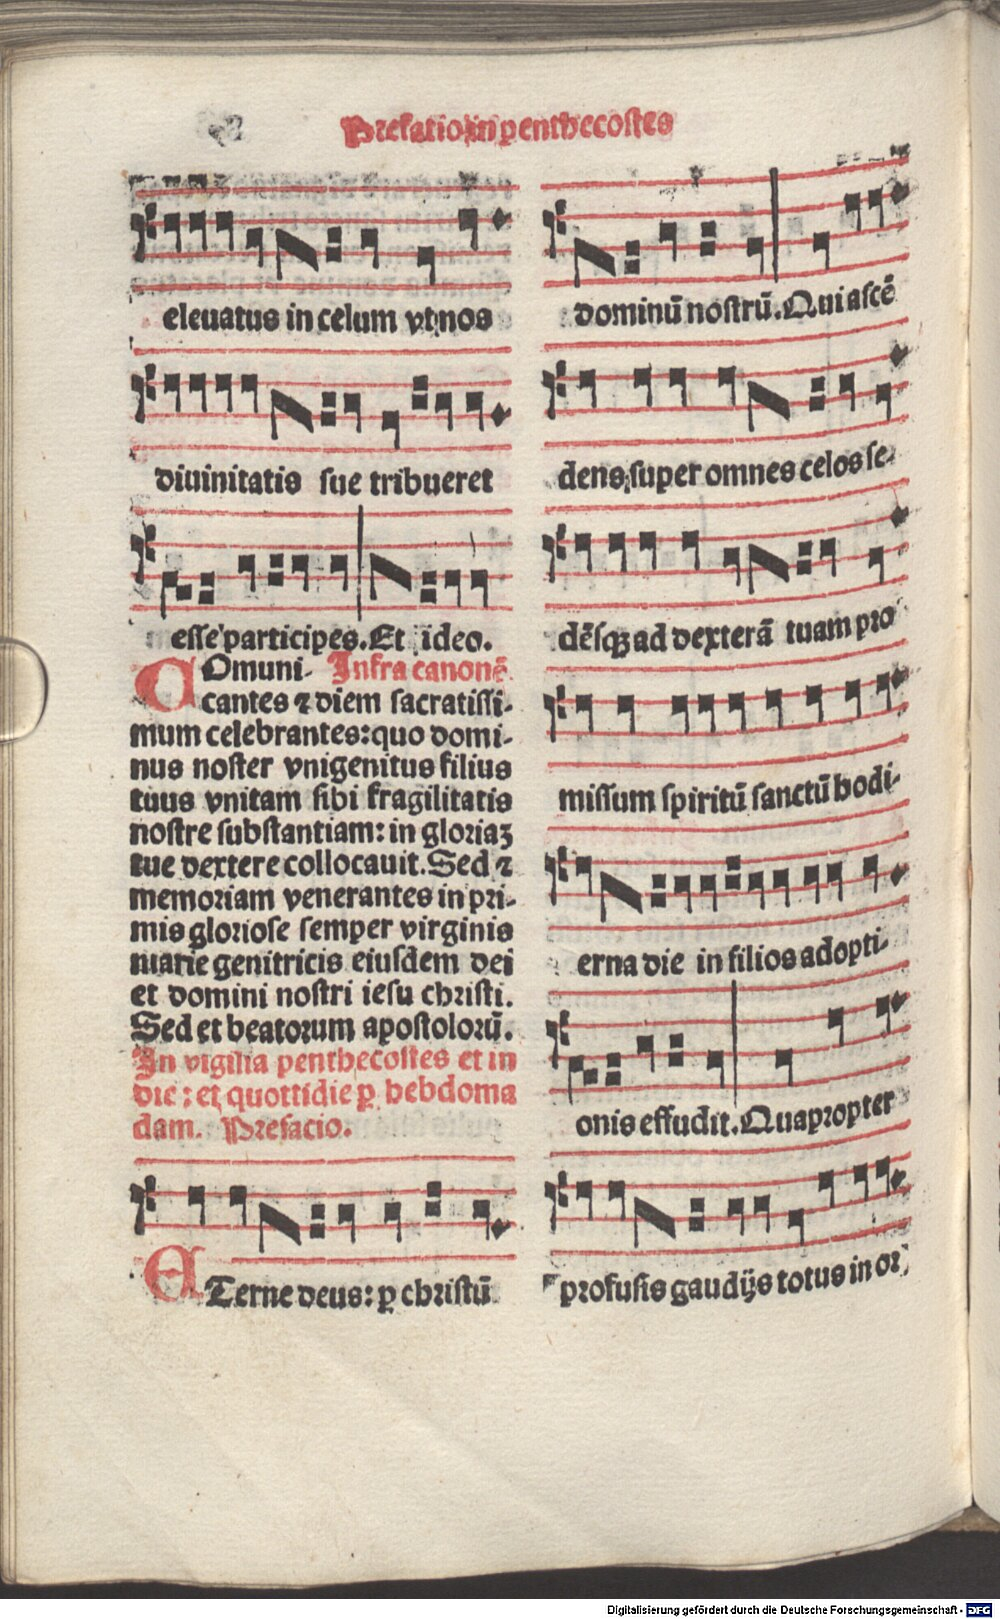 Prefatio in penthecostes
eleuatus in celum vt nos
diuinitatis sue tribueret
esse participes. Et ideo.
COmuni- Infra canonē
cantes ⁊ diem sacratissi-
mum celebrantes: quo domi-
nus noster vnigenitus filius
tuus vnitam sibi fragilitatis
nostre substantiam: in gloriaʒ
tue dextere collocauit. Sed ⁊
memoriam venerantes in pri-
mis gloriose semper virginis
marie genitricis eiusdem dei
et domini nostri iesu christi.
Sed et beatorum apostolorū.
In vigilia penthecostes et in
die: et quottidie ꝑ hebdoma
dam. Prefacio.
ETerne deus: ꝑ christū
dominū nostrū. Qui ascē
dens super omnes celos se-
dēsqꝫ ad dexterā tuam pro
missum spiritū sanctū hodi-
erna die in filios adopti-
onis effudit. Quapropter
profusis gaudijs totus in or
Digitalisierung gefördert durch die Deutsche Forschungsgemeinschaft - DFG